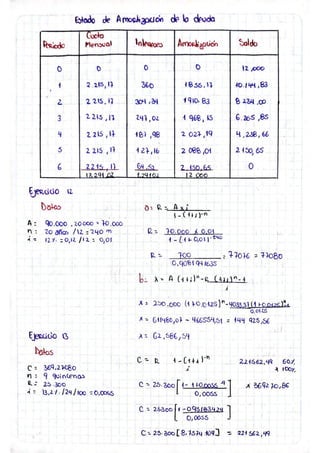 Estado de Amortización de la deuda
Periodo Cuota Mensual Intereses Amortización Saldo
0 0 0 0 12,000
1 2 215,17 360 1855,17 10.144,83
2 2 215,17 304,34 1910.83 8 234,00
3 2 215,17 247,02 1 968,15 6.265,85
4 2 215,17 187,98 2 027,19 4,238,66
5 2 215,17 127,16 2 088,01 2 150,65
6 2215,17 64.52 2 150,65 0
13.291,02 1.291,02 12 000
Ejercicio 12
Datos
A: 90.000 - 20000 = 70.000
n: 20 años / 12 = 240 m
i = 12% = 0,12 /12 = 0,01
a: R = A x i
1-(1+i)-n
R = 70.000 x 0,01
1-(1+0,01)-240
R = 700 = 770,76 = 770,80
b: A = A (1+i)n - R (1+i)n-1
0,0125
A = 62,586,54
Ejercicio 13
Datos
C = 369.270.80
n = 9 quincenas
R = 25.300
i = 13,2% /24/100 = 0,0055
C = R 1-(1+i)-n
i
221562,49 60%
x 100%
C = 25.300 [1-(1+0.0055)-9]
0,0055
x 369270,86
C = 25300 [1-0.95183429]
0,0055
C = 25.300 [8.7574.109] = 221562,49